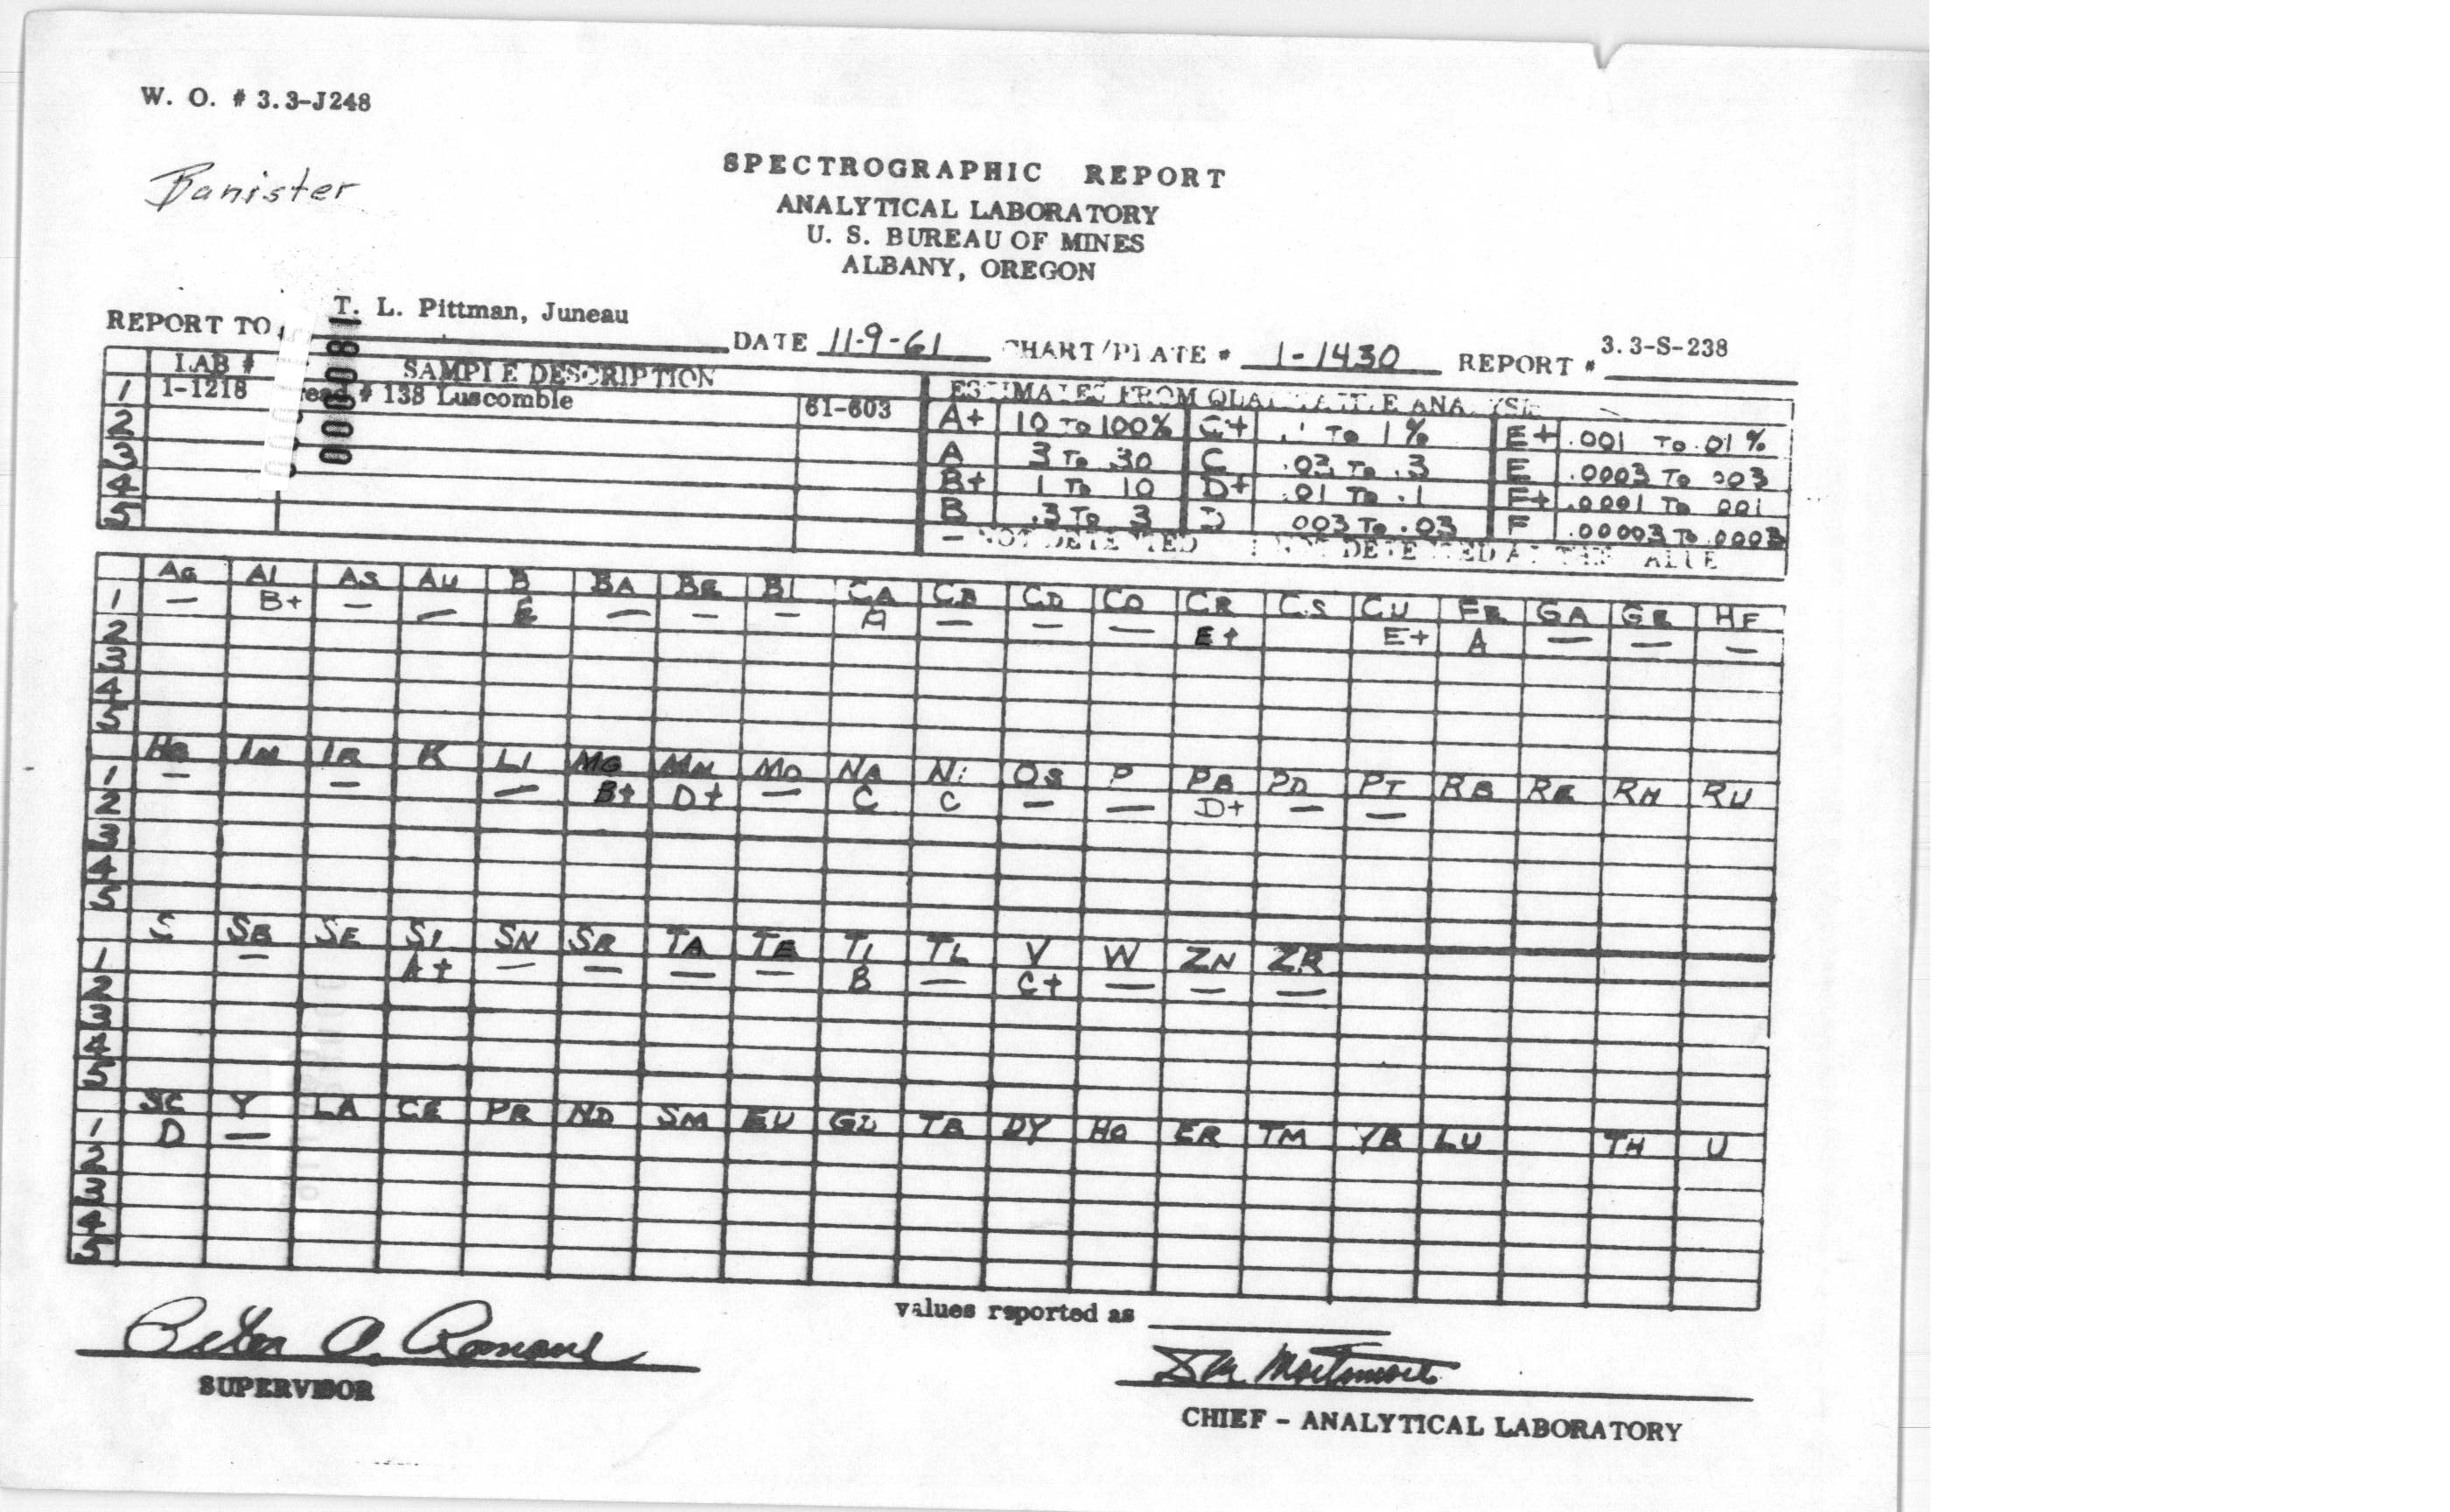 W. O. # 3.3-J248
Banister
SPECTROGRAPHIC REPORT
ANALYTICAL LABORATORY
U. S. BUREAU OF MINES
ALBANY, OREGON
REPORT TO T. L. Pittman, Juneau DATE 11-9-61 CHART/PLATE # 1-1430 REPORT # 3.3-S-238
LAB # SAMPLE DESCRIPTION
1 1-1218 # 138 Luscomble 61-603
2
3
4
5
ESTIMATES FROM ANALYSIS
A+ 10 TO 100% C+ .1 TO 1% E+ .001 TO .01%
A 3 TO 30 C .03 TO .3 E .0003 TO .003
B+ 1 TO 10 D+ .01 TO .1 F+ .0001 TO .001
B .3 TO 3 D .003 TO .03 F .00003 TO .0003
— NOT DETECTED NOT DETECTED AT THIS VALUE
00000081
AG AL AS AU B BA BE BI CA CB CD CO CR CS CU FE GA GE HF
1 — B+ — — E — — — A — — — E+ E+ A — — —
2
3
4
5
HG IN IR K LI MG MN MO NA NI OS P PB PD PT RB RE RH RU
1 — — — B+ D+ — C C — — D+ — —
2
3
4
5
S SB SE SI SN SR TA TE TI TL V W ZN ZR
1 — A+ — — — — B — C+ — — —
2
3
4
5
SC Y LA CE PR ND SM EU GD TB DY HO ER TM YB LU TH U
1 D —
2
3
4
5
values reported as
SUPERVISOR
CHIEF - ANALYTICAL LABORATORY